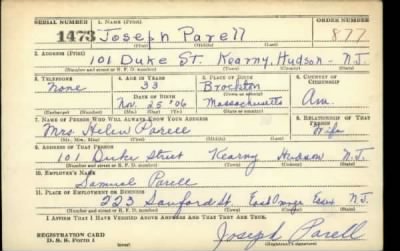 SERIAL NUMBER 1. NAME (Print) ORDER NUMBER
1473 Joseph Parell 877
(First) (Middle) (Last)
2. ADDRESS (Print)
101 Duke St. Kearny, Hudson - N.J.
(Number and street or R. F. D. number) (Town) (County) (State)
3. TELEPHONE 4. AGE IN YEARS 5. PLACE OF BIRTH 6. COUNTRY OF CITIZENSHIP
None 33 Brockton Am.
DATE OF BIRTH (Town or county)
Nov. 25 '06 Massachusetts
(Exchange) (Number) (Mo.) (Day) (Yr.) (State or country)
7. NAME OF PERSON WHO WILL ALWAYS KNOW YOUR ADDRESS 8. RELATIONSHIP OF THAT PERSON
Mrs. Helen Parell Wife
(Mr., Mrs., Miss) (First) (Middle) (Last)
9. ADDRESS OF THAT PERSON
101 Duke Street Kearny Hudson N.J.
(Number and street or R. F. D. number) (Town) (County) (State)
10. EMPLOYER'S NAME
Samuel Parell
11. PLACE OF EMPLOYMENT OR BUSINESS
223 Sanford St. East Orange Essex N.J.
(Number and street or R. F. D. number) (Town) (County) (State)
I AFFIRM THAT I HAVE VERIFIED ABOVE ANSWERS AND THAT THEY ARE TRUE.
REGISTRATION CARD
D. S. S. FORM 1 Joseph Parell
(Registrant's signature)